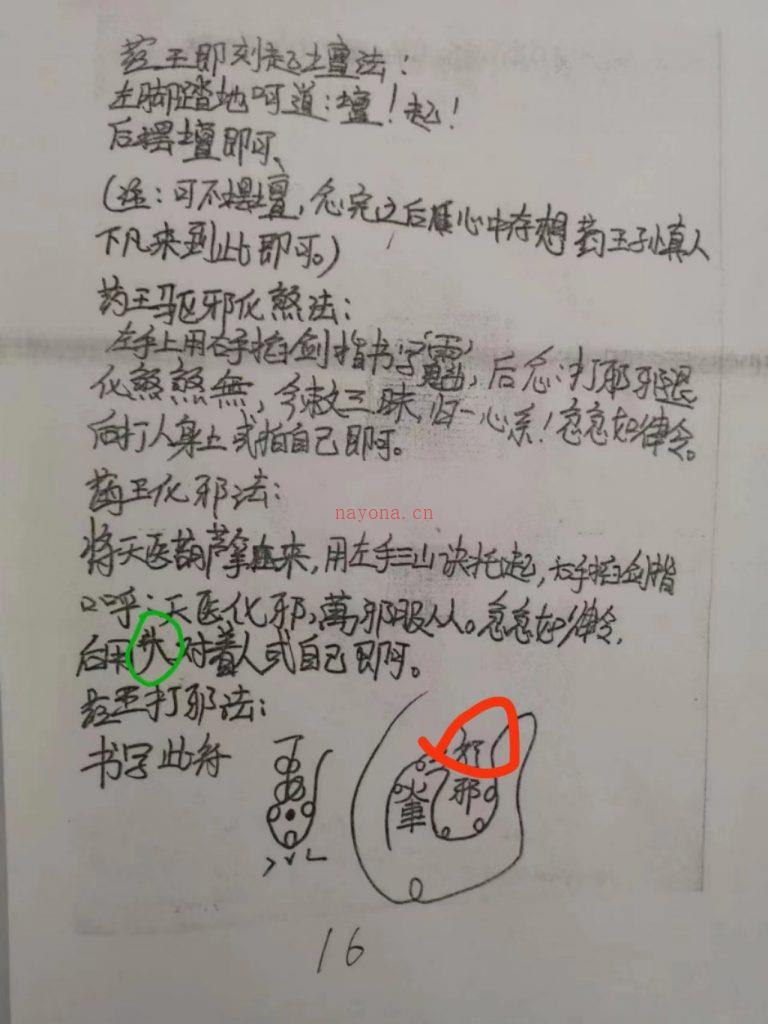 药王即刻起坛壇法：
左脚踏地呵道：壇！起！
后摆壇即可、
（注：可不摆壇，念完之后在心中存想药王孙真人
下凡来到此即可。）
药王驱邪化煞法：
左手上用右手掐剑指书字，后念：打邪邪退
化煞煞無，今敕三昧，归一心系！急急如律令。
后打人身上或拍自己即可。
药王化邪法：
将天医葫芦拿出来，用左手三山诀托起，右手掐剑指
口呼：天医化邪，萬邪服从。急急如律令，
后用头对着人或自己即可。
药王打邪法：
书字此符
邪
nayona.cn
16